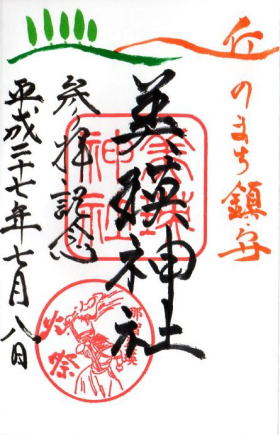 丘のまち鎮守
美瑛神社
参拝記念
平成二十七年七月八日
美瑛神社
火祭